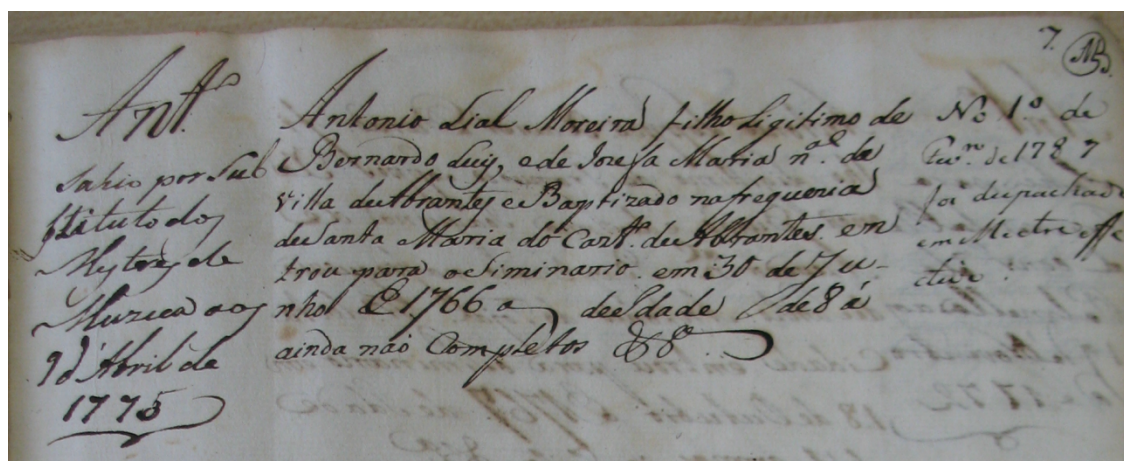 7.
Ant.º
Sahio por Sub
stituto dos
Mestres de
Muzica aos
9 d'Abril de
1775
Antonio Lial Moreira filho Ligitimo de
Bernardo Luis, e de Josefa Maria n.al da
villa de Abrantes e Baptizado na freguezia
de Santa Maria do Cast.º de Abrantes. en
trou para o Siminario em 30 de Ju-
nho de 1766 a de Edade de 8 á
ainda não Completos &ª
No 1.º de
de 1787
foi despachado
em Mestre effe
ctivo.